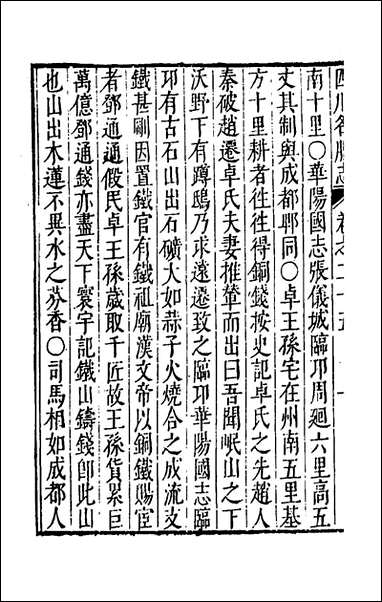 四川名勝志 卷之二十五
南十里○華陽國志張儀城臨邛周廻六里高五
丈其制與成都郫同○卓王孫宅在州南五里基
方十里耕者徃徃得銅錢按史記卓氏之先趙人
秦破趙遷卓氏夫妻推輦而出曰吾聞岷山之下
沃野下有蹲鴟乃求遠遷致之臨邛華陽國志臨
邛有古石山出石礦大如蒜子火燒合之成流支
鐵甚剛因置鐵官有鐵祖廟漢文帝以銅鐵賜宦
者鄧通通假民卓王孫歲取千匠故王孫貨累巨
萬億鄧通錢亦盡天下寰宇記鐵山鑄錢卽此山
也山出木蓮不異水之芬香○司馬相如成都人